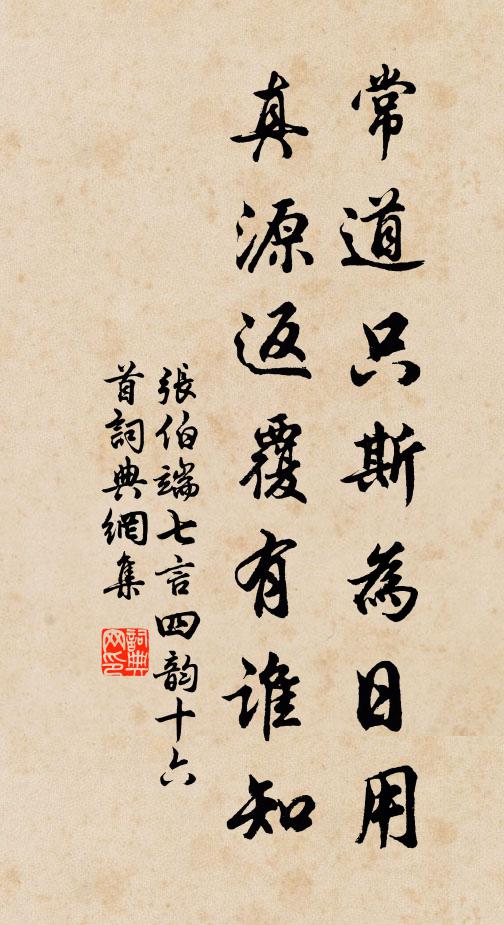 常道只斯為日用
真源返覆有誰知
張伯端七言四韵十六
首詞典網集
詞典
网印